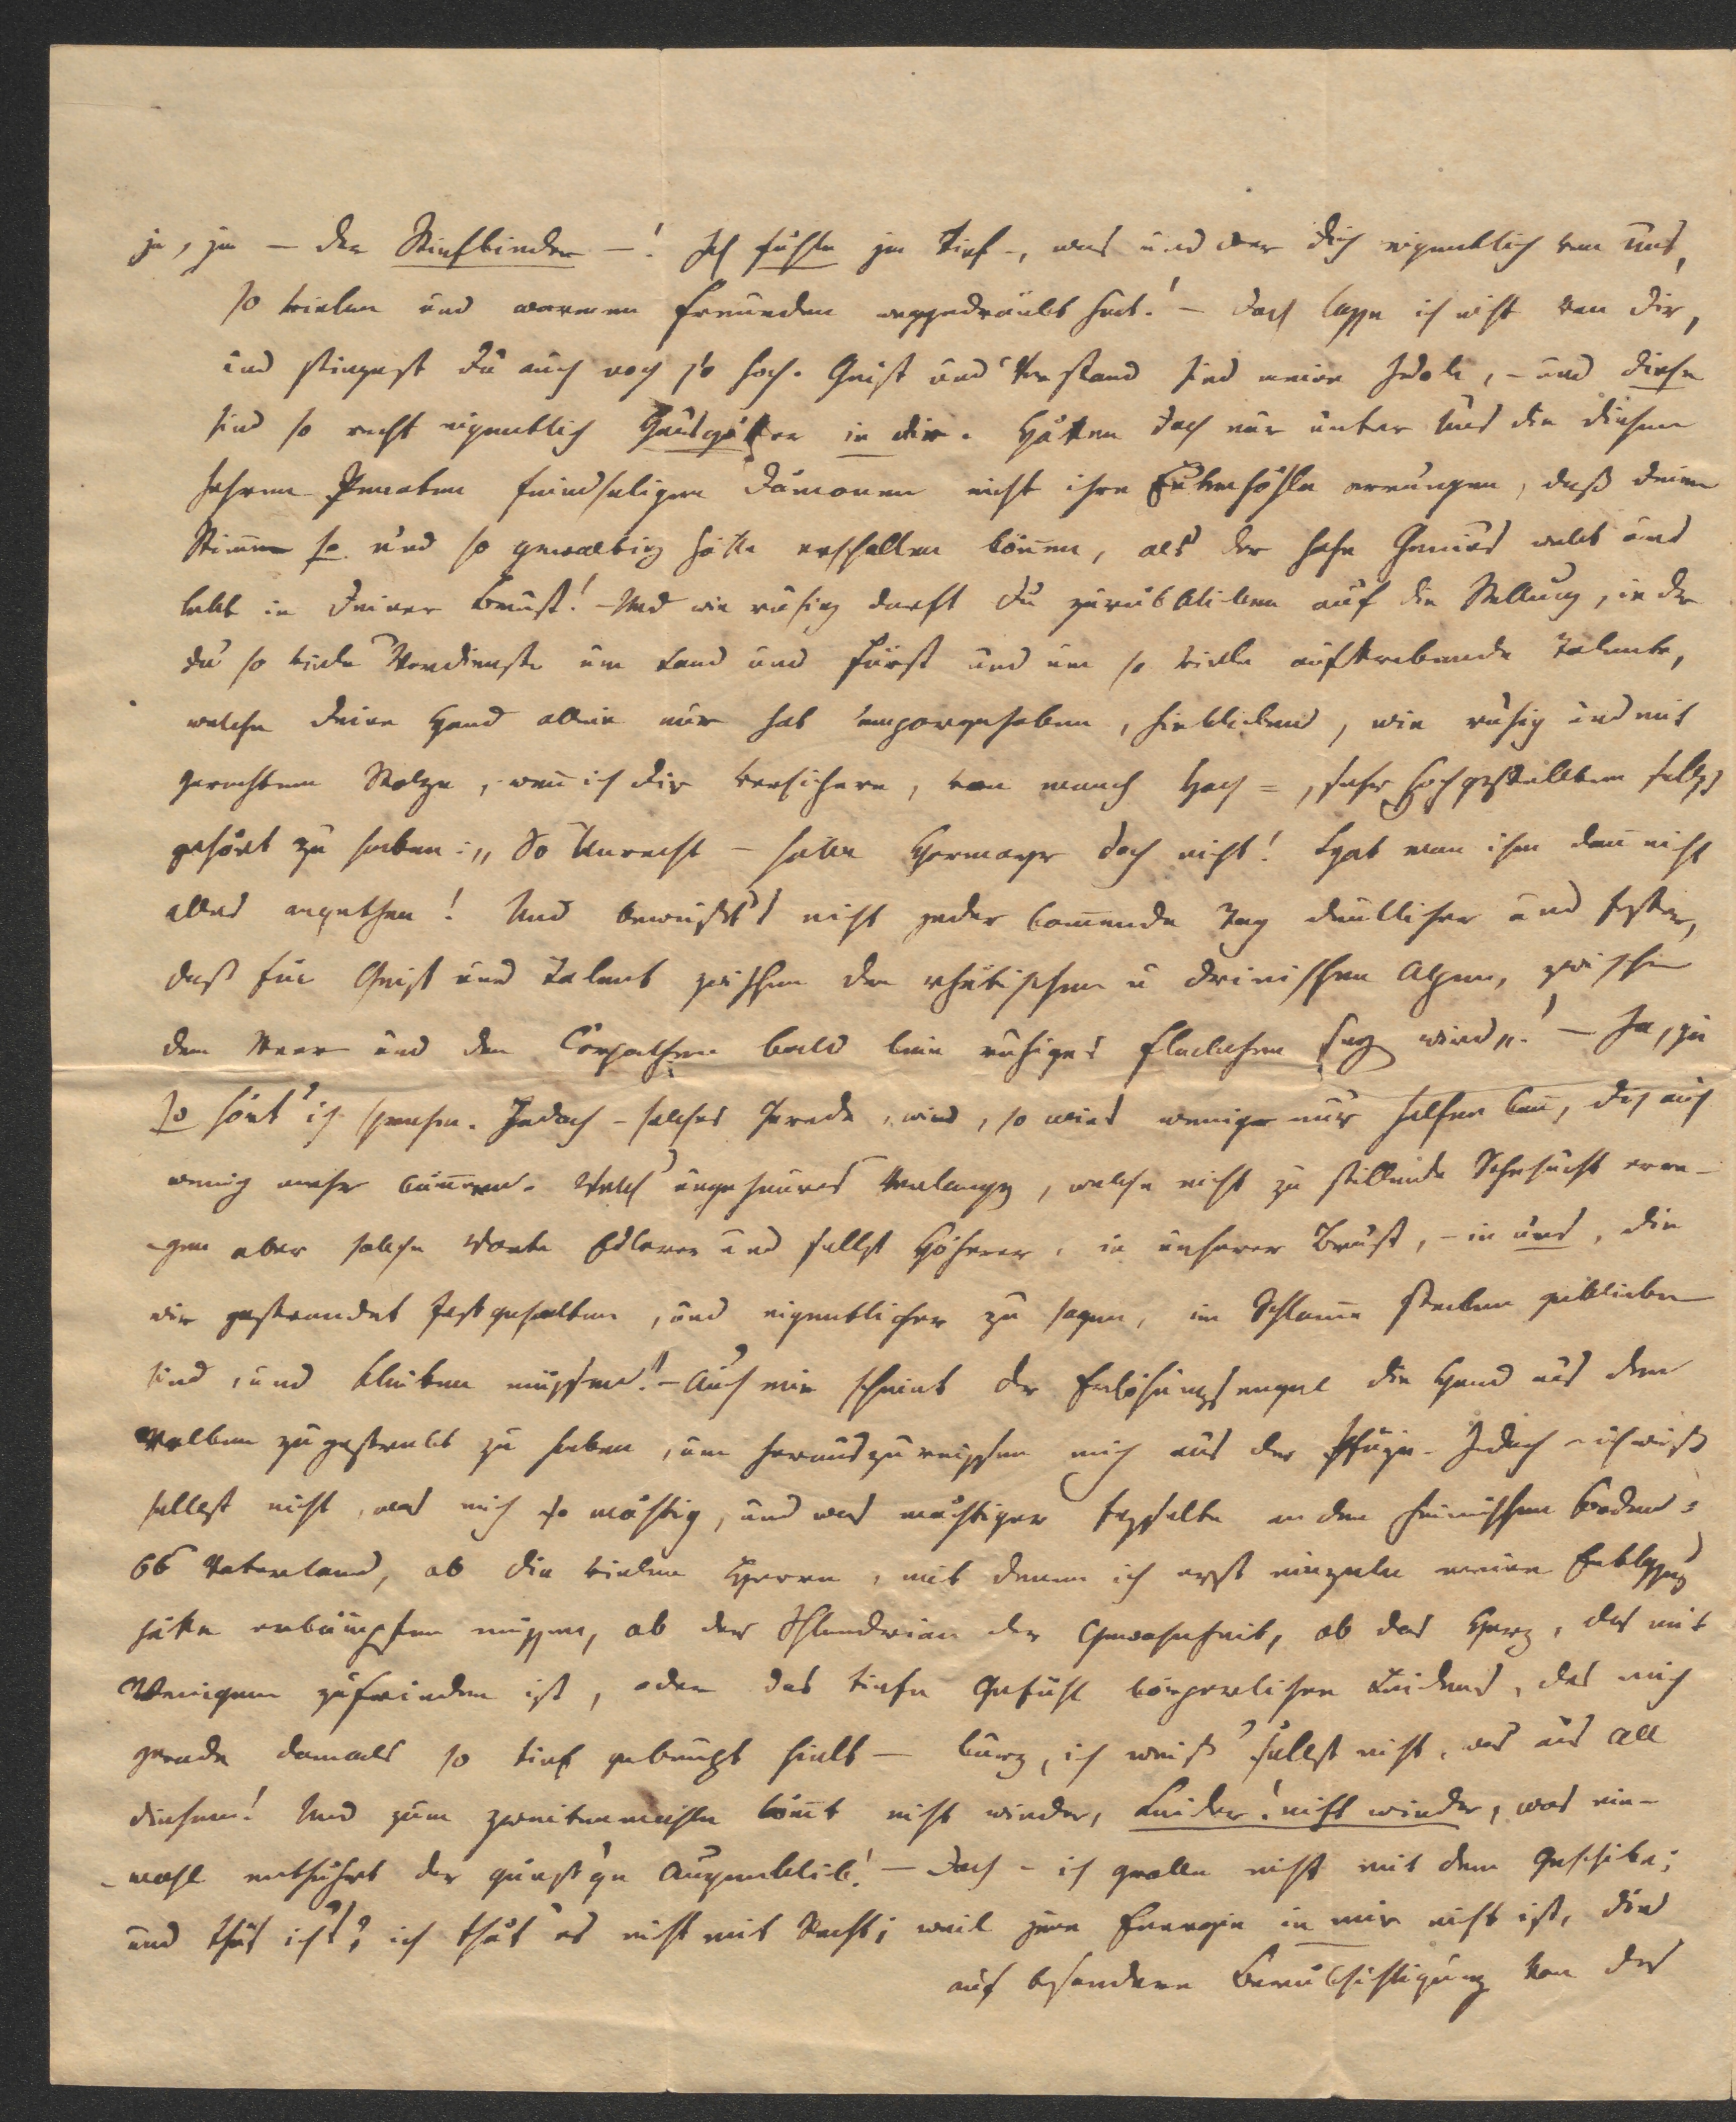 ja, ja – der Stiefkinder –! Ich fühle ja tief –, was und wer dich eigentlich von uns,
so vielen und warmen Freunden weggedrückt hat! – Doch lasse ich nicht von dir,
und stiegest du auch noch so hoch. Geist und Verstand sind meine Idole, – und diese
sind so recht eigentlich Hausgötter in dir. Hätten doch nur unter uns die diesen
hehren Penaten feindseligen Dämonen nicht ihre Eulenhöhle errungen, daß deine
Stimme so und so gewaltig hätte erschallen können, als der hohe Genius webt und
lebt in deiner Brust! – Und wie ruhig darfst du zurückblicken auf die Stellung, in der
du so viele Verdienste um Land und Fürst und um so viele aufstrebende Talente,
welche deine Hand allein nur hat emporgehoben, hinblickend, wie ruhig und mit
gerechtem Stolze, wenn ich dir versichere, von manch Hoch =, sehr hochgestelltem selbst
gehört zu haben: „So Unrecht – hätte Hormayr doch nicht! Hat man ihm denn nicht
alles angethan! Und beweist's nicht jeder kommende Tag deutlicher und fester,
daß für Geist und Talent zwischen den rhätischen u dinarischen Alpen, zwischen
dem Meer und den Carpathen bald kein ruhiges Fleckchen seyn wird“! – Ja, ja
so hört' ich sprechen. Jedoch – solches Gerede, wird, so wies weniger nur helfen kann, dich auch
wenig mehr kümmern. Welch' ungeheures Verlangen, welche nicht zu stillende Sehnsucht erre-
-gen aber solche Worte Edlerer und selbst Höherer, in unserer Brust, – in uns, die
wir gestrandet festgehalten, und eigentlicher zu sagen, im Schlamme stecken geblieben
sind, und bleiben müssen! – Auch mir scheint der Erlösungsengel die Hand aus den
Wolken zugestreckt zu haben, um herauszureissen mich aus der Pfütze. Jedoch – ich weiß
selbst nicht, was mich so mächtig, und was mächtiger fesselte an den heimischen Boden:
Ob Vaterland, ob die vielen Herren, mit denen ich erst einzeln meine Entlassung
hätte erkämpfen müssen, ob der Schlendrian der Gewohnheit, ob das Herz, das mit
Wenigem zufrieden ist, oder das tiefe Gefühl körperlichen Leidens, das mich
gerade damals so tief gebeugt hielt – kurz, ich weiß' selbst nicht, was aus all
diesem! Und zum zweitenmahle kömmt nicht wieder, Leider! nicht wieder, was ein-
-mahl entführt der günst'ge Augenblick! – Doch – ich grolle nicht mit dem Geschicke;
und thät ich's? ich thät' es nicht mit Recht; weil jene Energie in mir nicht ist, die
auf besondere Berücksichtigung von der